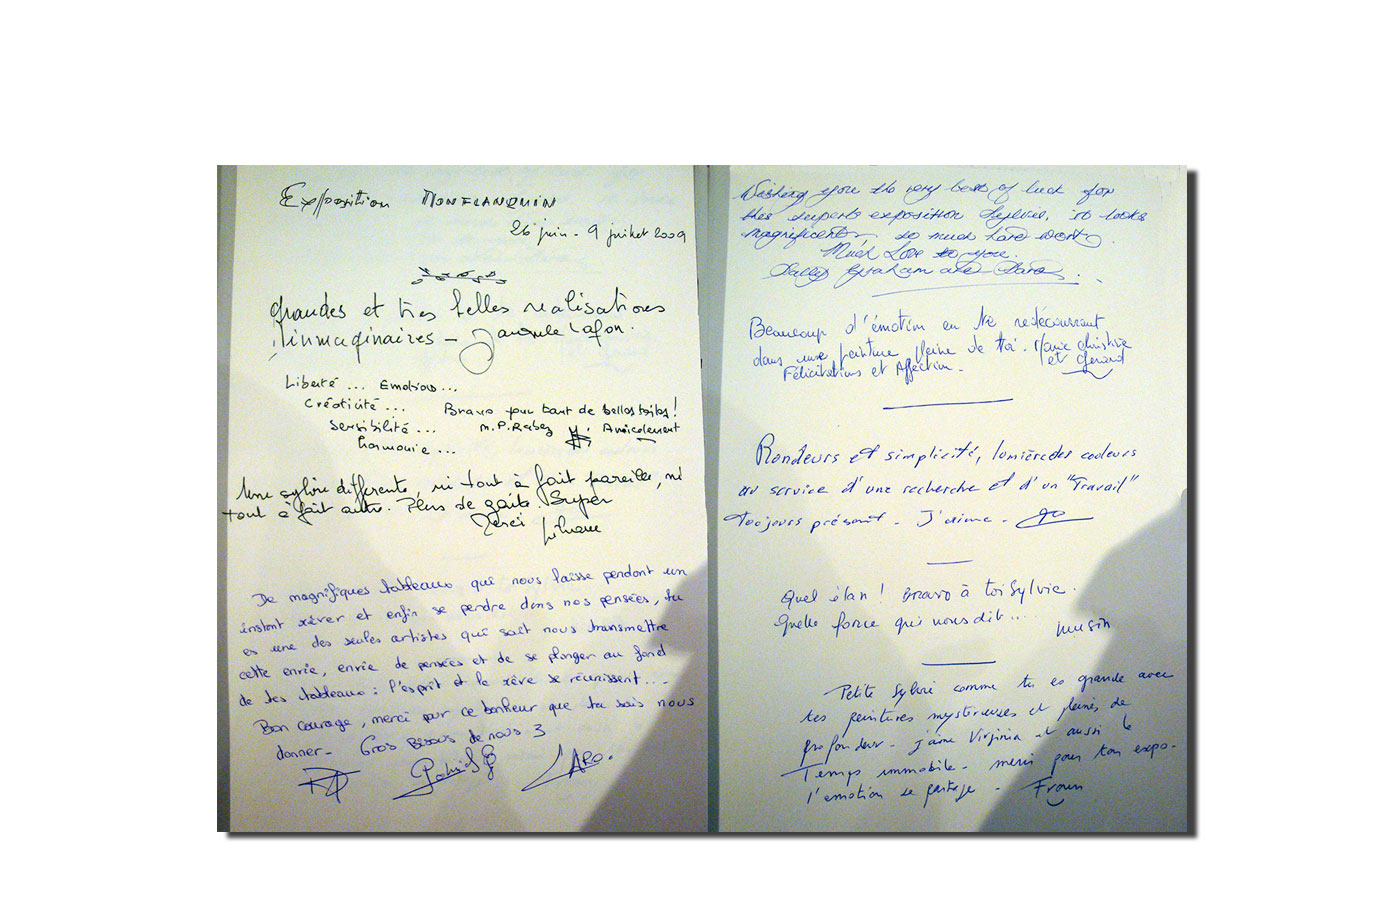 Exposition MONFLANQUIN
26 juin - 9 juillet 2009
Grandes et très belles realisations
inmaginaires - Lafon.
Liberté ... Emotions ...
Créativité ...
Bravo pour tant de belles toiles !
Sensibilité ...
M.P. Rabez Amicalement
harmonie ...
Une sylvie differente, ni tout à fait pareille, ni
tout à fait autre. Plus de gaité. Super
Merci
De magnifiques tableaux qui nous laisse pendant un
instant rêver et enfin se perdre dans nos pensées, tu
es une des seules artistes qui sait nous transmettre
cette envie, envie de pensées et de se plonger au fond
de tes tableaux : l'esprit et le rêve se réunissent...
Bon courage, merci pour ce bonheur que tu sais nous
donner - Gros Bisous de nous 3
CARO.
Wishing you the very best of luck for
this superb exposition Sylvie, it looks
magnificent, so much hard work
Much Love to you.
Sally Graham and
Beaucoup d'émotion en te redécouvrant
dans une peinture pleine de toi. Marie Christine
et Gérard
Félicitations et Affection.
Rondeurs et simplicité, lumière des couleurs
au service d'une recherche et d'un "Travail"
toujours présent - J'aime -
Quel élan ! Bravo à toi Sylvie.
Quelle force qui nous dit ...
Petite Sylvie comme tu es grande avec
tes peintures mystérieuses et pleines de
profondeur - j'aime Virginia et aussi le
Temps immobile - merci pour ton expo -
l'émotion se partage -